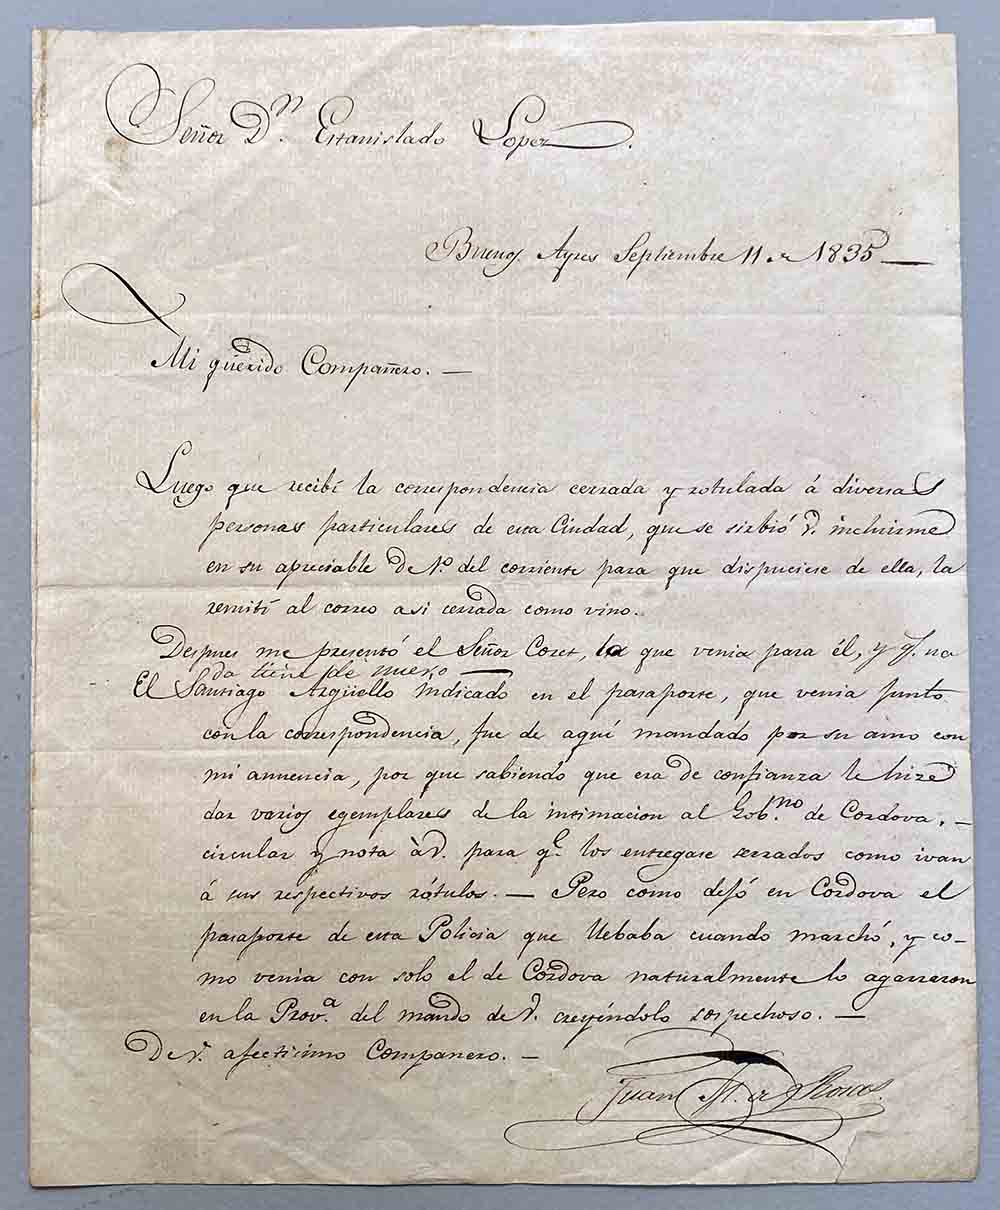 Señor Dn. Estanislado Lopez.
Buenos Ayres Septiembre 11 de 1835 —
Mi qüerido Compañero. —
Luego que recibí la correspondencia cerrada y rotulada á diversas
personas particulares de esta Ciudad, que se sirbió V. incluirme
en su apreciable de 1o. del corriente para que dispuciese de ella, la
remití al correo asi cerrada como vino.
Despues me presentó el Señor Coret, la que venia para él, y q. na
da tiene de nuevo —
El Santiago Argüello indicado en el pasaporte, que venia junto
con la correspondencia, fue de aquí mandado por su amo con
mi anuencia, por que sabiendo que era de confianza le hize
dar varios egemplares de la intimacion al Gob.no de Cordova, —
circular y nota à V. para qe. los entregase serrados como ivan
á sus respectivos rótulos. — Pero como dejó en Cordova el
pasaporte de esta Policia que llebaba cuando marchó, y co-
mo venia con solo el de Cordova naturalmente lo agarraron
en la Prov.a del mando de V. creyéndolo sospechoso. —
De V. afectisimo Compañero. —
Juan M. de Rosas.